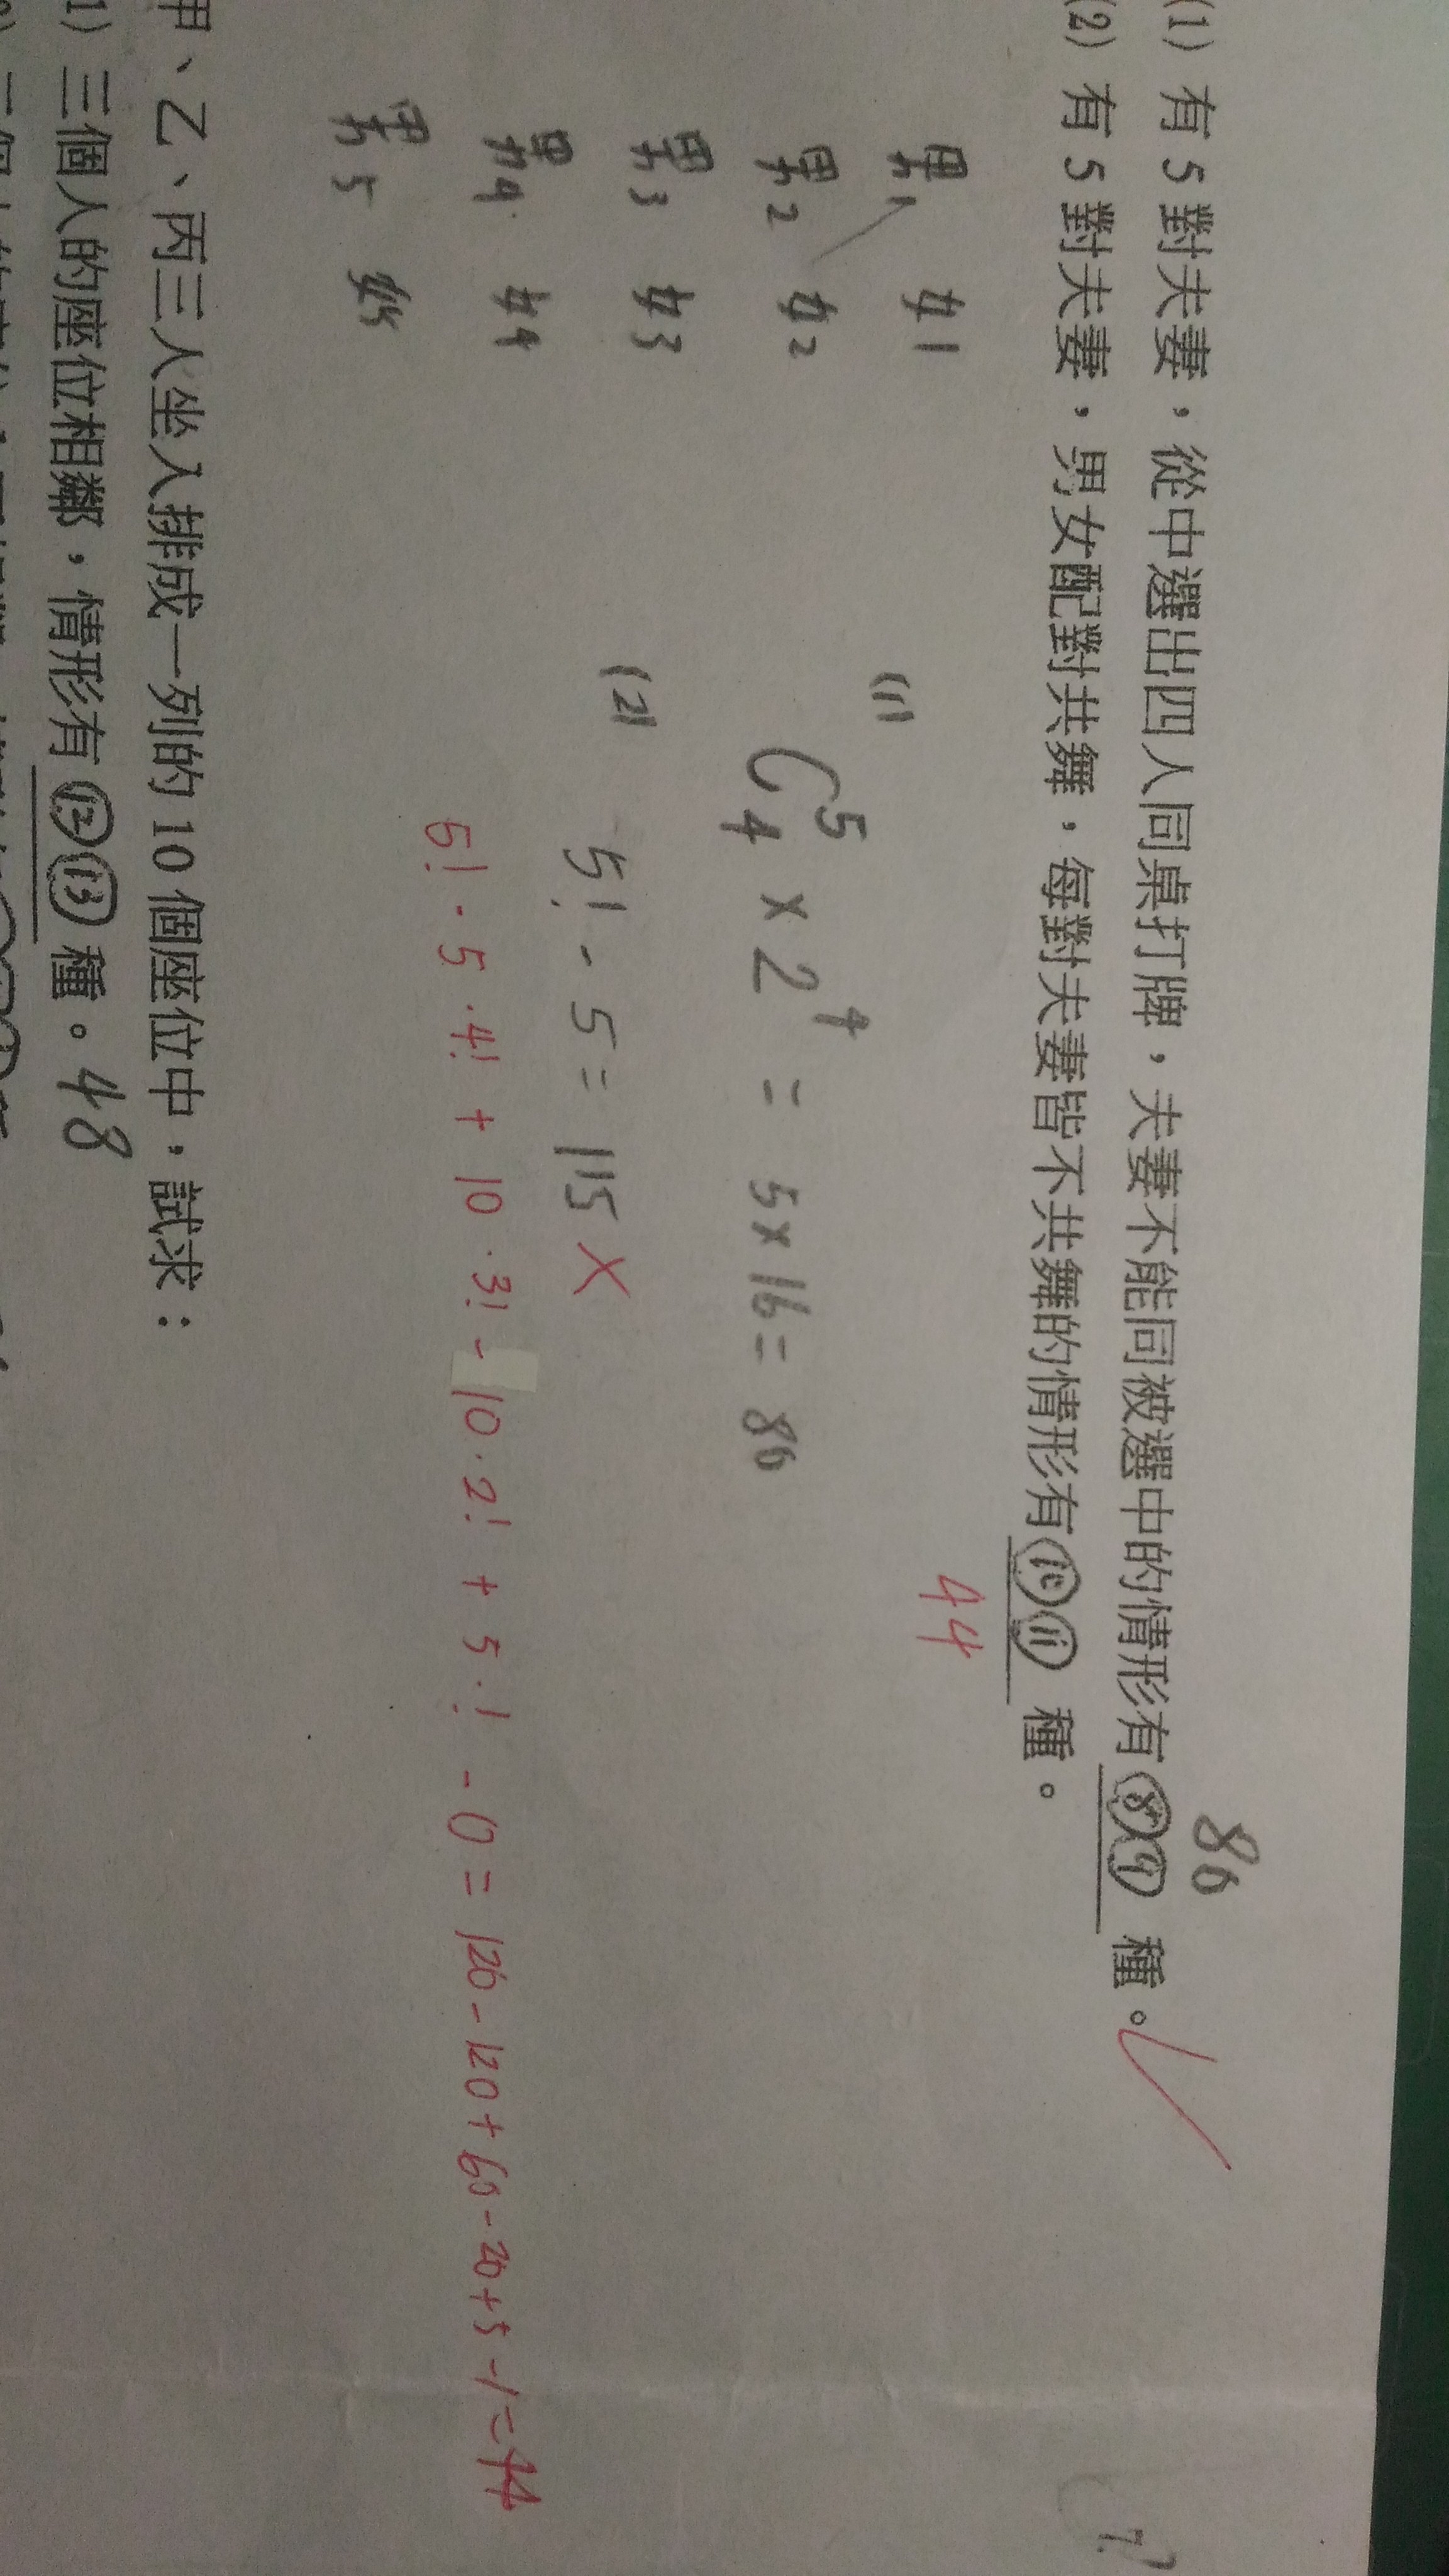 (1) 有 5 對夫妻，從中選出四人同桌打牌，夫妻不能同被選中的情形有 ⑧⑨ 種。
80
(2) 有 5 對夫妻，男女配對共舞，每對夫妻皆不共舞的情形有 ⑩⑪ 種。
44
男1 女1
男2 女2
男3 女3
男4 女4
男5 女5
(1)
C⁵₄ × 2⁴ = 5×16 = 80
(2)
5! - 5 = 115 ×
5! - 5·4! + 10·3! - 10·2! + 5·1! - 0! = 120 - 120 + 60 - 20 + 5 - 1 = 44
甲、乙、丙三人坐入排成一列的 10 個座位中，試求：
1) 三個人的座位相鄰，情形有 ⑫⑬ 種。48